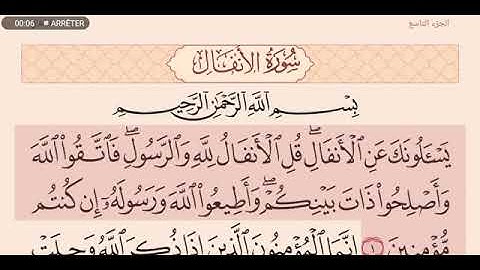 00:06 / ■ ARRÊTER
الجزء التاسع
سُورَةُ الأَنفَالِ
بِسْمِ ٱللَّهِ ٱلرَّحْمَٰنِ ٱلرَّحِيمِ
يَسْـَٔلُونَكَ عَنِ ٱلْأَنفَالِ ۖ قُلِ ٱلْأَنفَالُ لِلَّهِ وَٱلرَّسُولِ ۖ فَٱتَّقُوا۟ ٱللَّهَ
وَأَصْلِحُوا۟ ذَاتَ بَيْنِكُمْ ۖ وَأَطِيعُوا۟ ٱللَّهَ وَرَسُولَهُۥٓ إِن كُنتُم
مُّؤْمِنِينَ ١ إِنَّمَا ٱلْمُؤْمِنُونَ ٱلَّذِينَ إِذَا ذُكِرَ ٱللَّهُ وَجِلَتْ